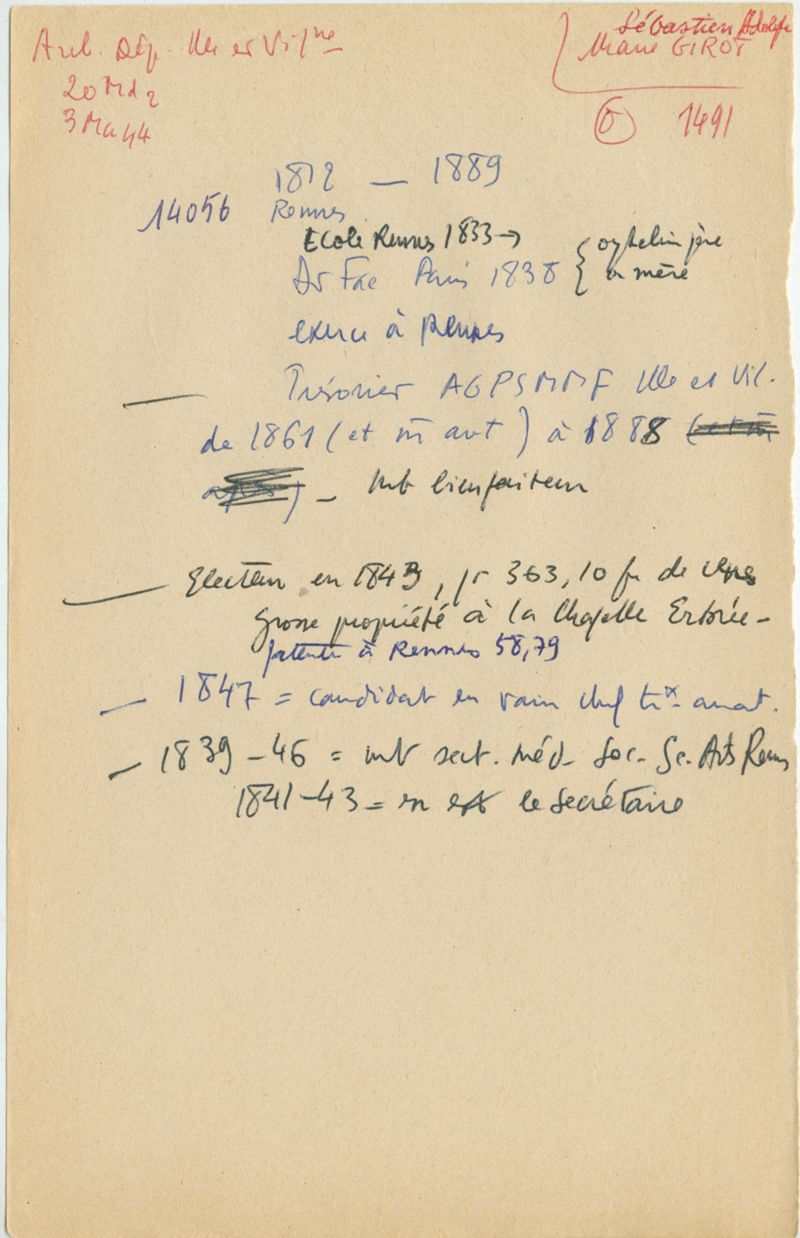 Arch. Dép. Ille et Vilne
20 Md 2
3 Ma 44
Sébastien Adolfe
Marie GIROT
6 1491
1812 — 1889
14056 Rennes
Ecole Rennes 1833 → { orphelin père
Dr Fac Paris 1838 { et mère
exerce à Rennes
— Trésorier AGPSMMF Ille et Vil.
de 1861 (et m̄ avt) à 1888
— mb bienfaiteur
— Electeur en 1843, pr 363,10 fr de cens
Grosse propriété à la Chapelle Erbrée -
patente à Rennes 58,79
— 1847 = candidat en vain chef trx anat.
— 1839 - 46 = mb sect. méd. Soc. Sc. Arts Rennes
1841 - 43 = en est le secrétaire